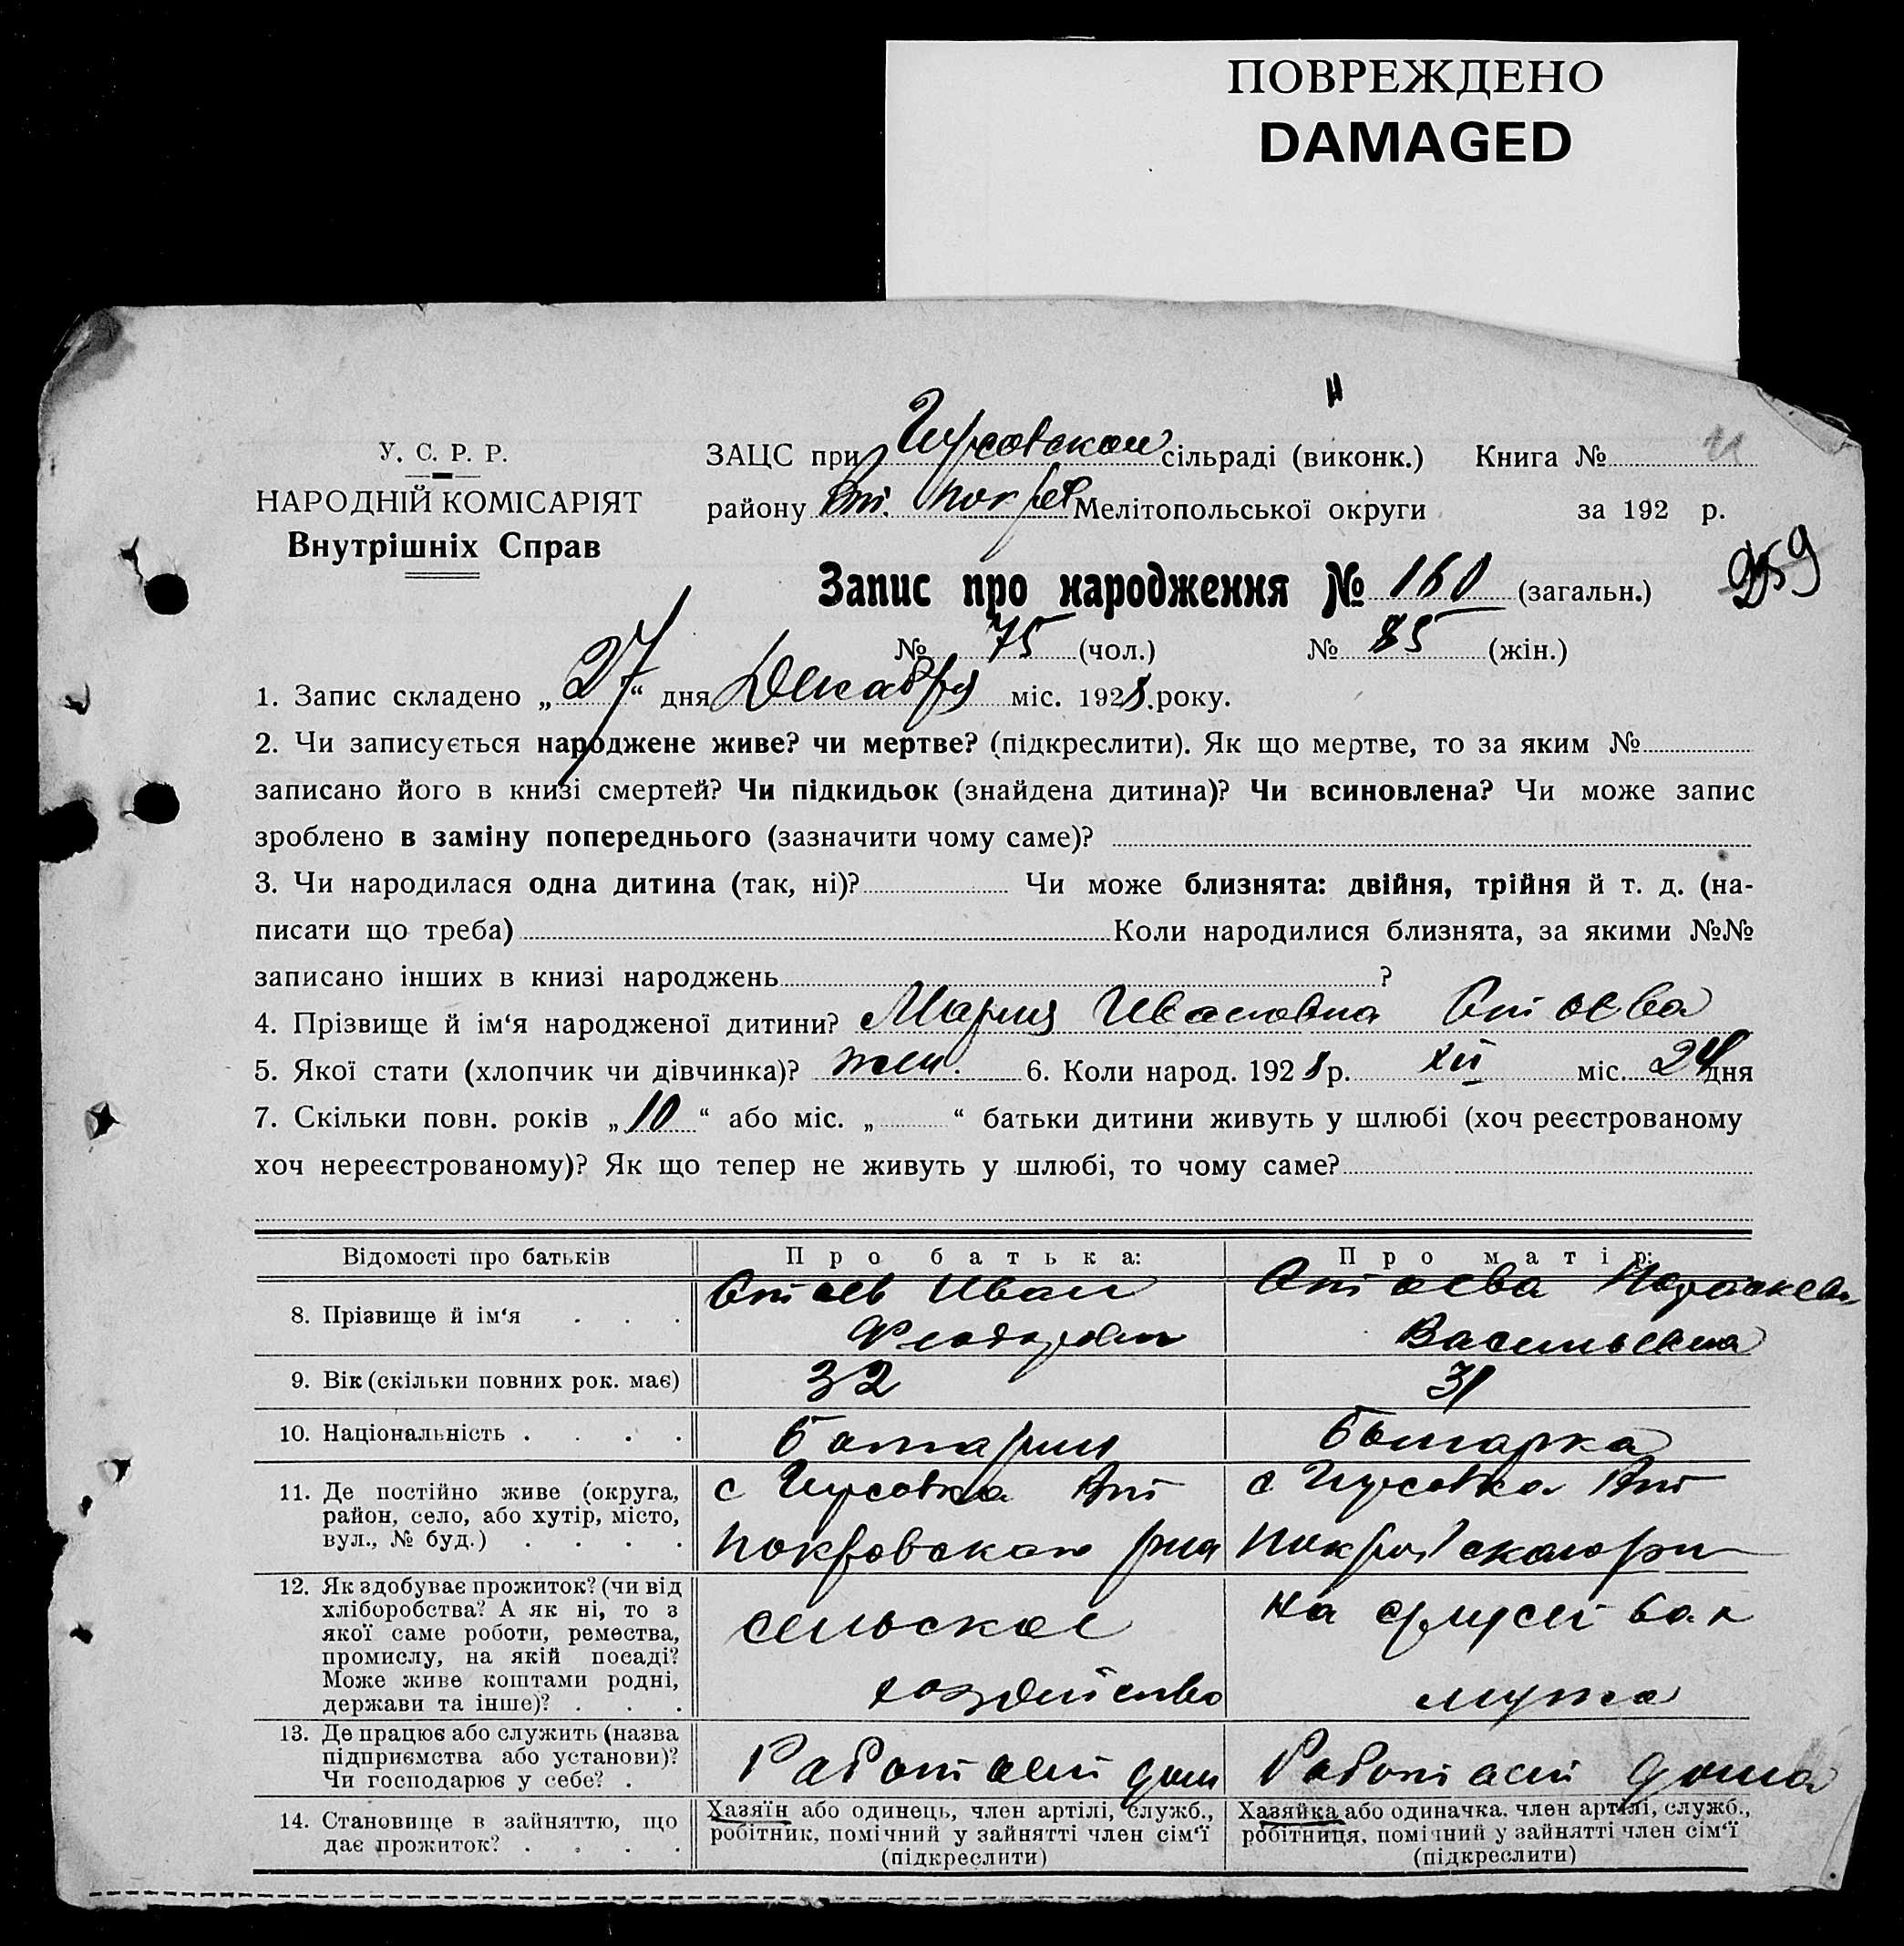 ПОВРЕЖДЕНО
DAMAGED
У. С. Р. Р.
НАРОДНІЙ КОМІСАРІЯТ
Внутрішніх Справ
ЗАЦС при Гирсовском сільраді (виконк.) Книга №
району Ан. Покров Мелітопольської округи за 192 р.
Запис про народження № 160 (загальн.)
959
№ 75 (чол.) № 85 (жін.)
1. Запис складено „27“ дня Декабря міс. 1928.року.
2. Чи записується народжене живе? чи мертве? (підкреслити). Як що мертве, то за яким №
записано його в книзі смертей? Чи підкидьок (знайдена дитина)? Чи всиновлена? Чи може запис
зроблено в заміну попереднього (зазначити чому саме)?
3. Чи народилася одна дитина (так, ні)? Чи може близнята: двійня, трійня й т. д. (на-
писати що треба) Коли народилися близнята, за якими №№
записано інших в книзі народжень ?
4. Прізвище й ім‘я народженої дитини? Мария Ивановна Отаева
5. Якої стати (хлопчик чи дівчинка)? жен. 6. Коли народ. 1928 р. XII міс. 24 дня
7. Скільки повн. років „10“ або міс. „ “ батьки дитини живуть у шлюбі (хоч реєстрованому
хоч нереєстрованому)? Як що тепер не живуть у шлюбі, то чому саме?
Відомості про батьків Про батька: Про матір:
8. Прізвище й ім‘я . . . Отаев Иван Отаева Параскева
Феодоров Васильевна
9. Вік (скільки повних рок. має) 32 31
10. Національність . . . . Болгарин Болгарка
11. Де постійно живе (округа, с Гирсовка Ан с Гирсовка Ан
район, село, або хутір, місто,
вул., № буд.) . . . . Покровского рна Покровского рн
12. Як здобуває прожиток? (чи від
хліборобства? А як ні, то з сельское на
якої саме роботи, ремества,
промислу, на якій посаді?
Може живе коштами родні, хозяйство мужа
держави та інше)? . . .
13. Де працює або служить (назва
підприємства або установи)? Работает дома Работает дома
Чи господарює у себе? .
14. Становище в зайняттю, що Хазяїн або одинець, член артілі, служб., Хазяйка або одиначка, член артілі, служб.,
дає прожиток? . . . . робітник, помічний у зайнятті член сім‘ї робітниця, помічний у зайнятті член сім‘ї
(підкреслити) (підкреслити)